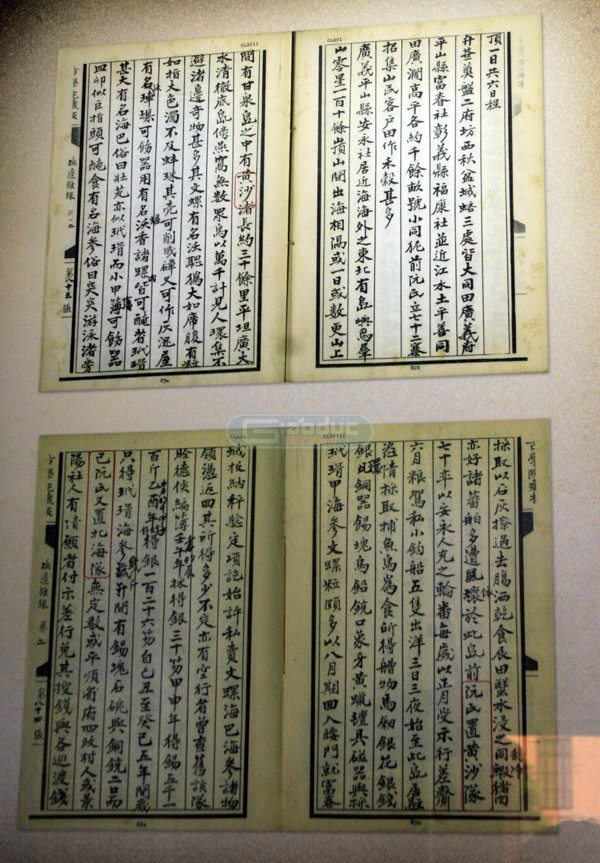 頂一日共六日程
升莖奠盤二府坊西秋盆城蛒三處皆大同田廣義府
平山縣富春社彰義縣福康社並近江水土平善同
田廣濶高平各約千餘畝號小同犯前阮氏立七十二寨
招集山民客戶田作禾穀甚多
廣義平山縣安永社居近海海外之東北有島嶼焉羣
山零星一百十餘嶺山間出海相隔或一日或數更山上
間有甘泉島之中有黃沙渚長約三十餘里平坦廣大
水清徹底島傍燕窩無數眾鳥以萬千計見人環集不
避渚邊奇物甚多其文螺有名沃聰大如席腹有粒
如指大色濁不及蚌珠其壳可削成碑又可作灰泥屋
有名璖可飭器用有名沃香諸螺皆可醃煮玳瑁
甚大有名海巴俗曰壯芃亦似玳瑁而小甲薄可飭器
皿卵似巨指頭可醃食有名海參俗曰突突游泳渚旁
撫邊雜錄 卷二
第八十三張
採取以石灰擦過去腸洒乾食辰田蟹水浸之同蝦猪肉
亦好諸舊舶多遭風壞於此島前阮氏置黃沙隊
七十率以安永人充之輪番每歲以正月受示行差賫
六月粮駕私小釣船五隻出洋三日三夜始至此島居駐
恣情採取捕魚鳥為食所得艚物馬劍銀花銀錢
銀環銅器錫塊烏鉛銃口象牙黃蠟氊具磁器與採
玳瑁甲海參文螺粒頗多以八月期回入腰門就富春
城投納秤驗定項訖始許私賣文螺海巴海參諸物
領憑返回其所得多少不定亦有空行者曾查舊該隊
德侯編簿壬午年採得銀三十笏甲申年得錫五千一
百斤乙酉年得銀一百二十六笏自己丑至癸巳五年間歲
只得玳瑁海參幾斤間有錫塊石碗與銅銃二口而
已阮氏又置北海隊無定數或平順府四政村人或景
陽社人有情願者付示差行免其搜錢與各巡渡錢
撫邊雜錄 卷二
第八十四張